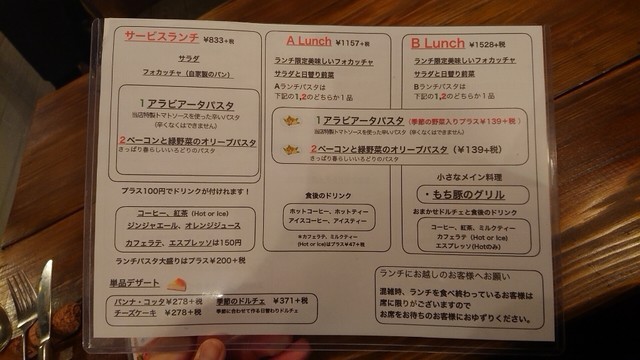 サービスランチ ¥833+税
サラダ
フォカッチャ（自家製のパン）
1 アラビアータパスタ
当店特製トマトソースを使った辛いパスタ
（辛くなくはできません）
2 ベーコンと緑野菜のオリーブパスタ
さっぱり春らしいいろどりのパスタ
プラス100円でドリンクが付けれます！
コーヒー、紅茶（Hot or Ice）
ジンジャエール、オレンジジュース
カフェラテ、エスプレッソは150円
ランチパスタ大盛りはプラス¥200+税
単品デザート
パンナ・コッタ¥278+税
チーズケーキ ¥278+税
季節のドルチェ ¥371+税
季節に合わせて作る日替わりドルチェ
A Lunch ¥1157+税
ランチ限定美味しいフォカッチャ
サラダと日替り前菜
Aランチパスタは
下記の1,2のどちらか1品
B Lunch ¥1528+税
ランチ限定美味しいフォカッチャ
サラダと日替り前菜
Bランチパスタは
下記の1,2のどちらか1品
1 アラビアータパスタ（季節の野菜入りプラス¥139+税）
当店特製トマトソースを使った辛いパスタ（辛くなくはできません）
2 ベーコンと緑野菜のオリーブパスタ（¥139+税）
さっぱり春らしいいろどりのパスタ
食後のドリンク
ホットコーヒー、ホットティー
アイスコーヒー、アイスティー
*カフェラテ、ミルクティー
(Hot or Ice)はプラス¥47+税
小さなメイン料理
・もち豚のグリル
おまかせドルチェと食後のドリンク
コーヒー、紅茶、ミルクティー
カフェラテ（Hot or Ice)
エスプレッソ(Hotのみ)
ランチにお越しのお客様へお願い
混雑時、ランチを食べ終わっているお客様は
席に限りがございますので
お席をお待ちのお客様におゆずりください。